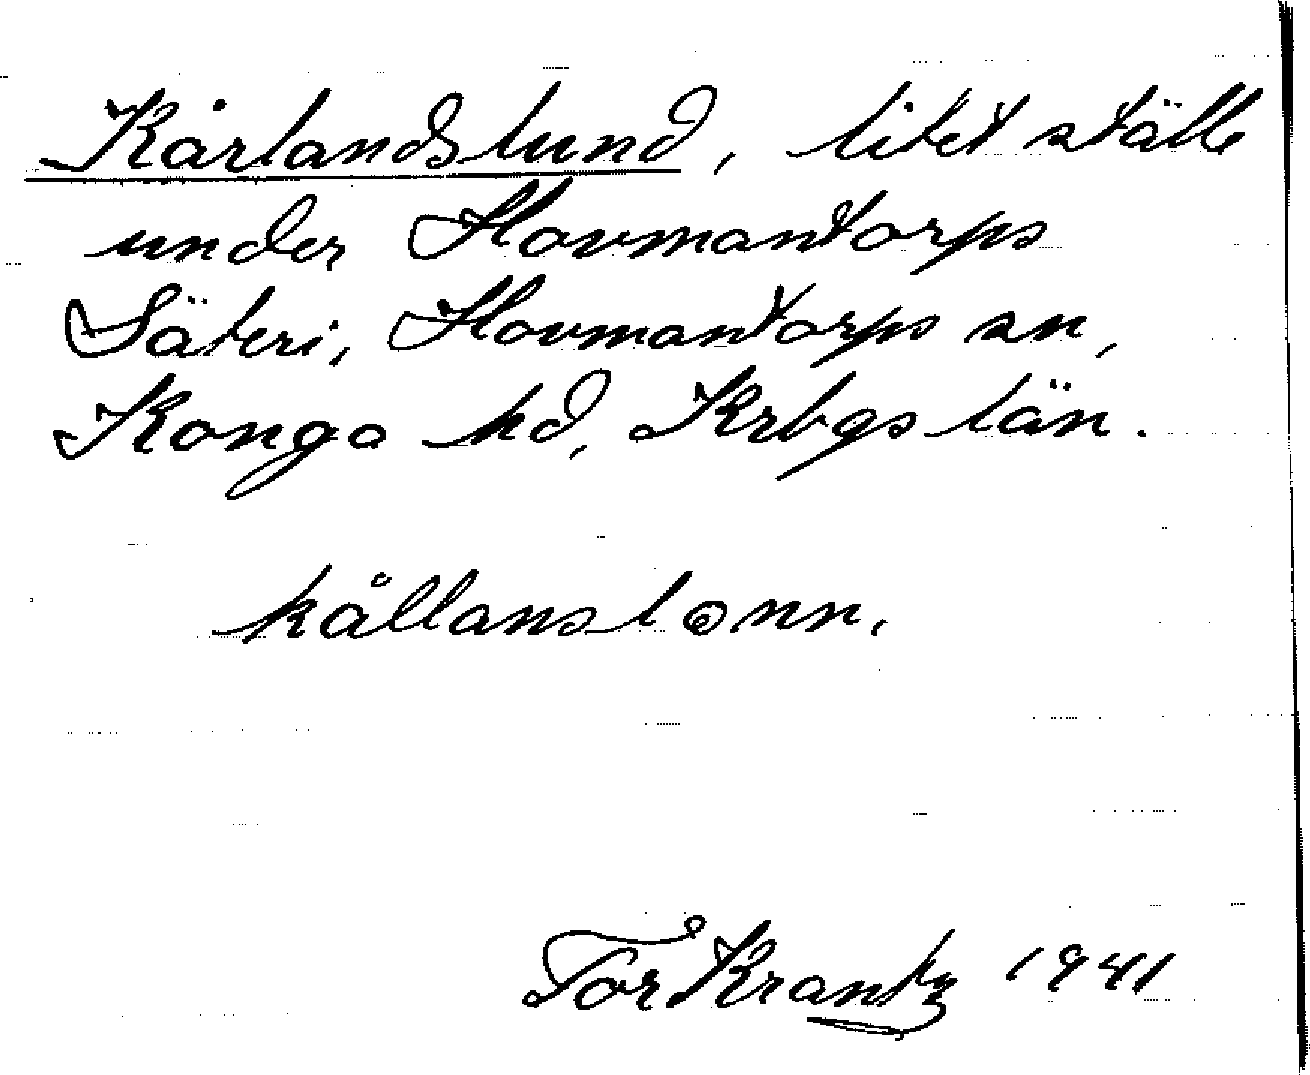 Kårlandslund, litet ställe
under Hovmantorps
Säteri, Hovmantorps sn,
Konga hd, Krbgs län.
kållanslonn.
Tor Krantz 1941